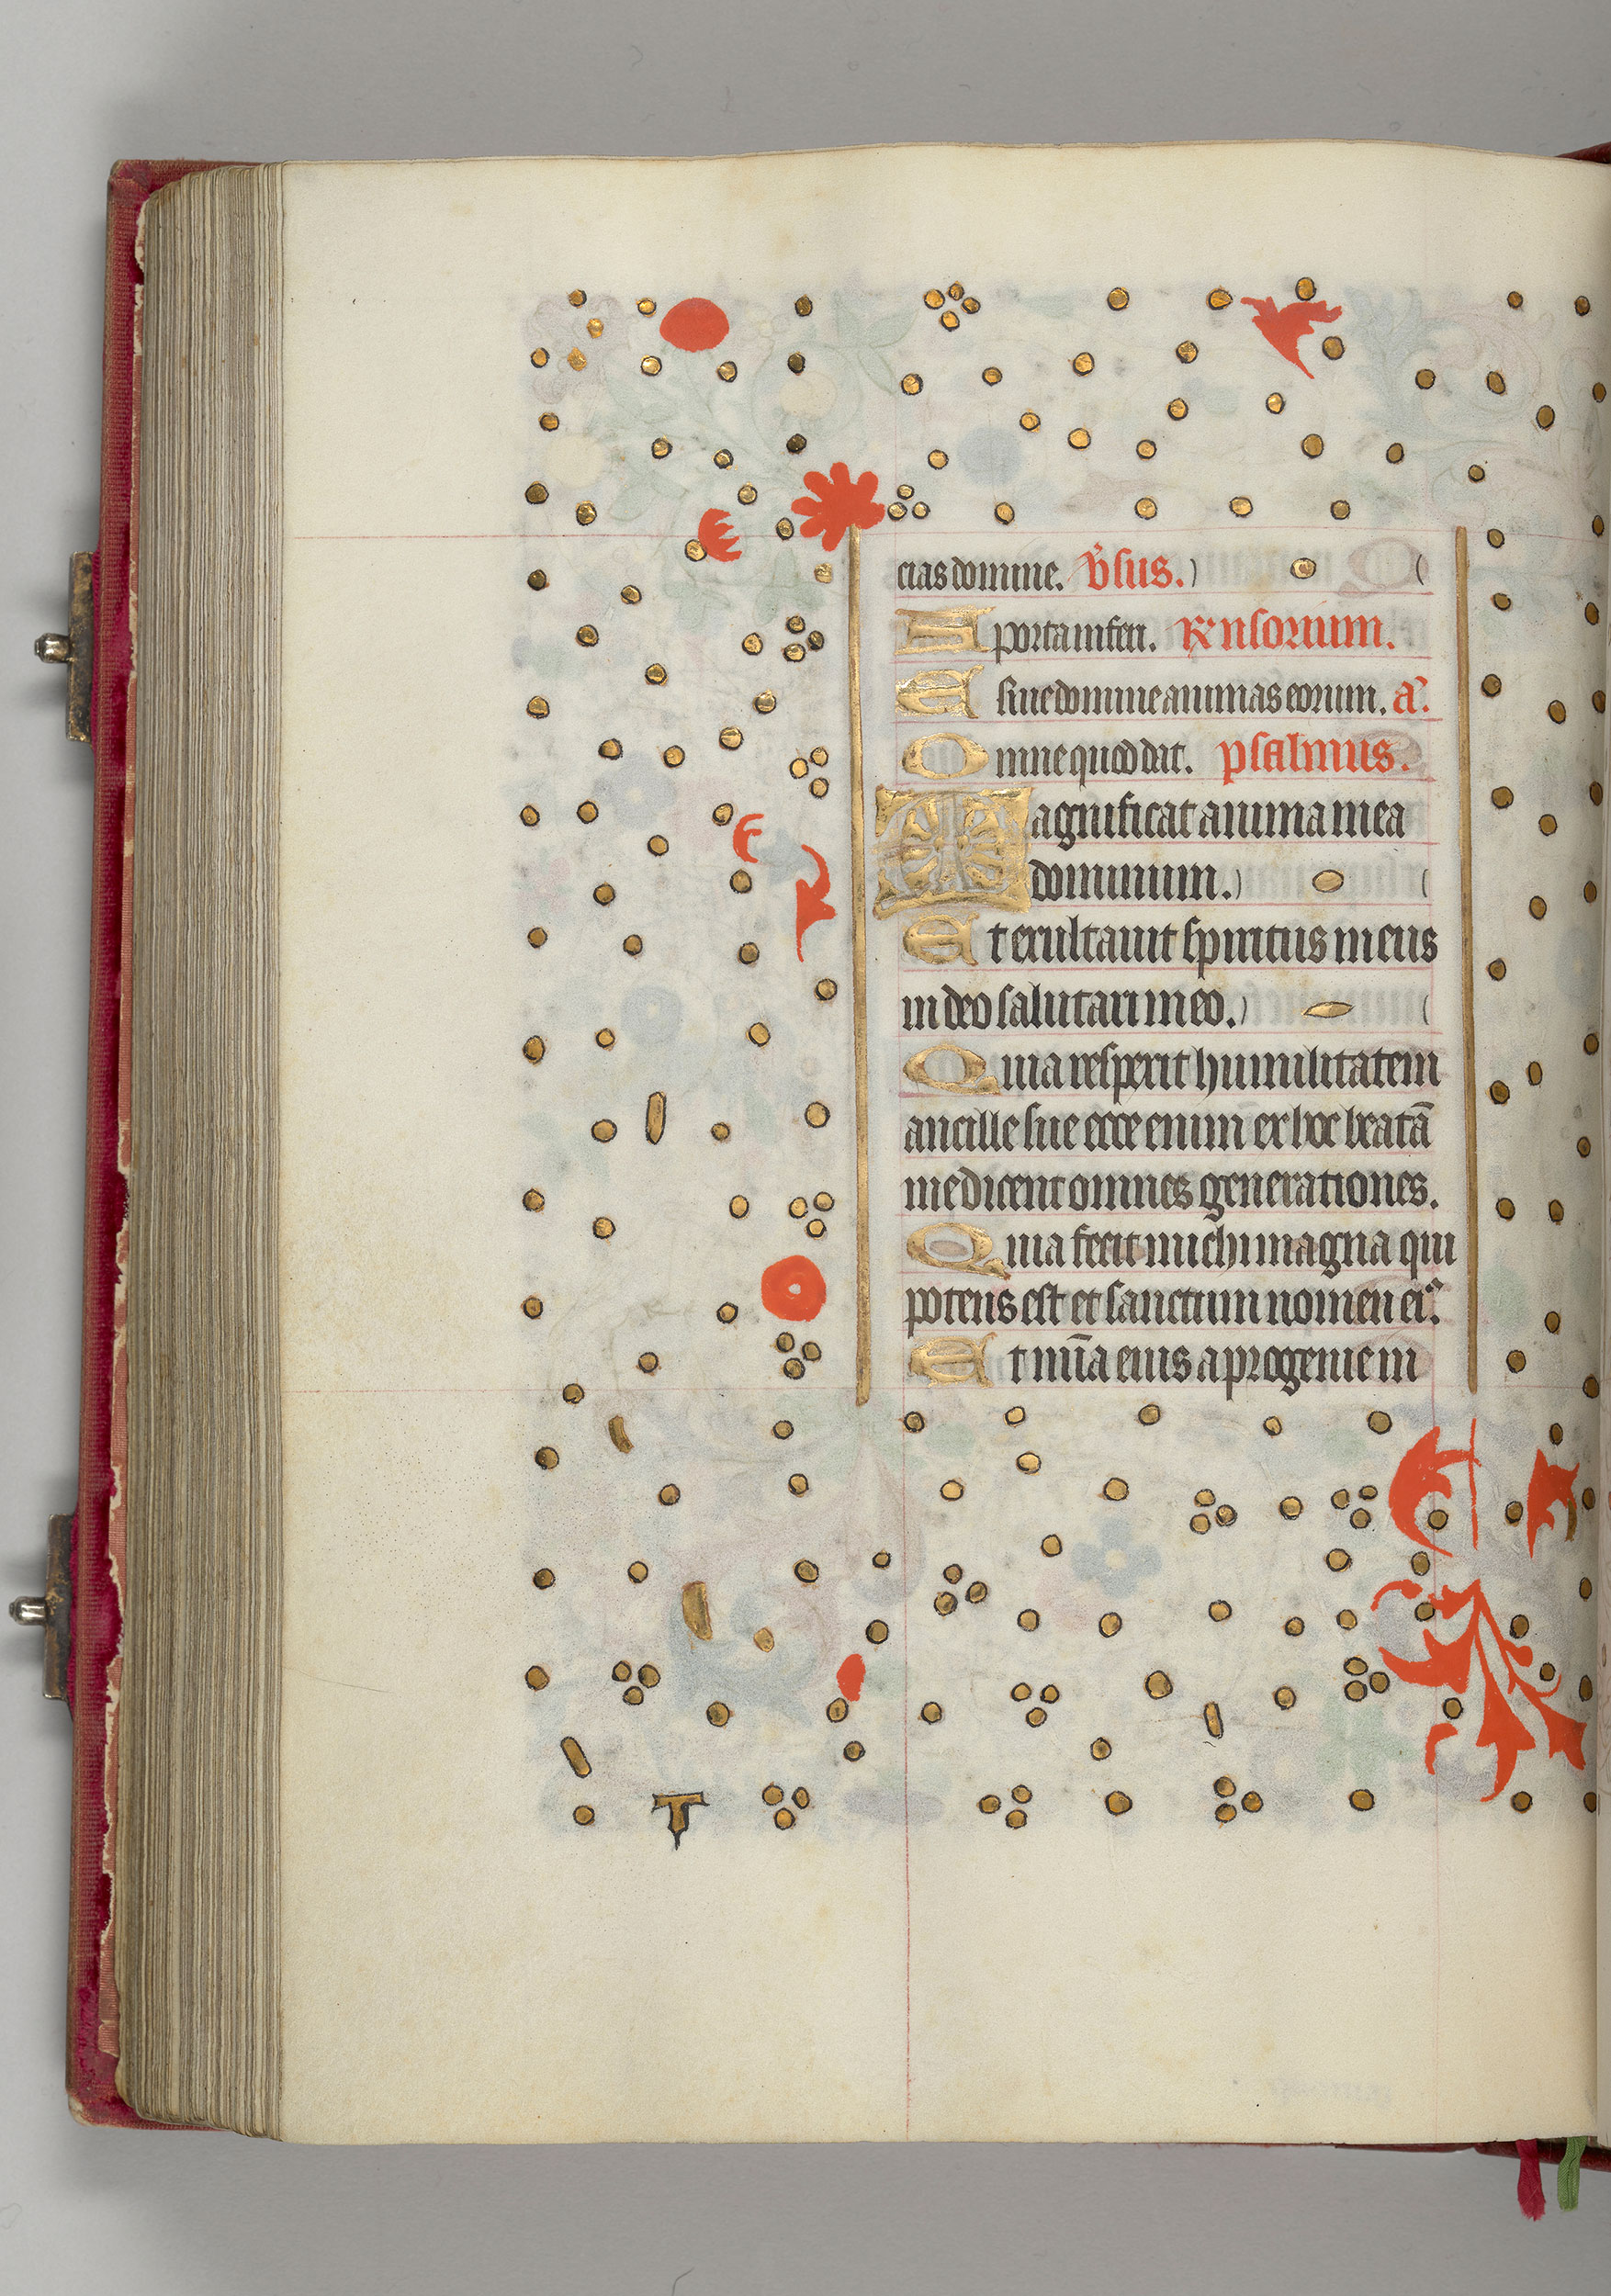 cias domine. v̄sus.
A porta inferi. R̵nsorium.
E rue domine animas eorum. añ.
O mne quod dat. psalmus.
Magnificat anima mea
dominum.
Et exultauit spiritus meus
in deo salutari meo.
Quia respexit humilitatem
ancille sue ecce enim ex hoc beatā
me dicent omnes generationes.
Quia fecit michi magna qui
potens est et sanctum nomen eiꝰ.
Et mīa eius a progenie in